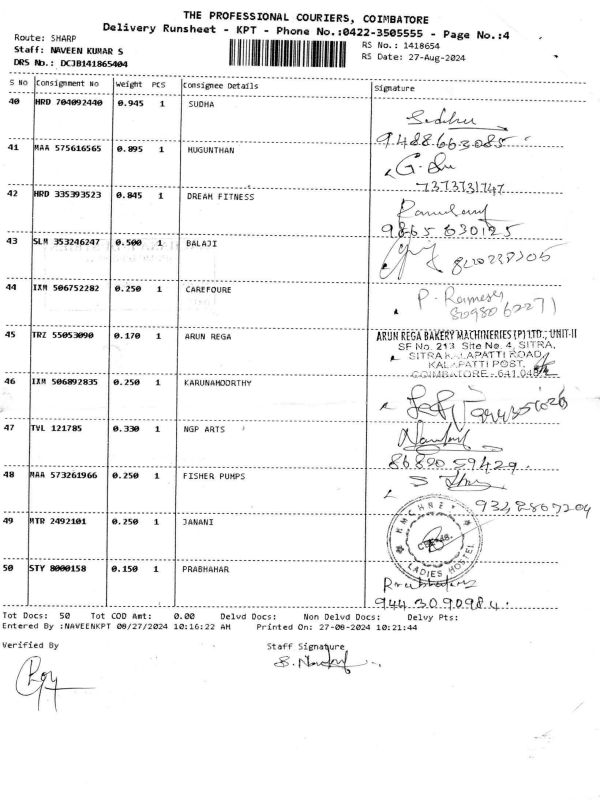 THE PROFESSIONAL COURIERS, COIMBATORE
Delivery Runsheet - KPT - Phone No.:0422-3505555 - Page No.:4
Route: SHARP
RS No.: 1418654
Staff: NAVEEN KUMAR S
RS Date: 27-Aug-2024
DRS No.: DCJB141865404
S No Consignment No Weight PCS Consignee Details Signature
40 HRD 704092440 0.945 1 SUDHA
9488663085
41 MAA 575616565 0.895 1 MUGUNTHAN
7373731747
42 HRD 335393523 0.845 1 DREAM FITNESS
9865030125
43 SLM 353246247 0.500 1 BALAJI
44 IXM 506752282 0.250 1 CAREFOURE
P. Ramesh
8098062271
45 TRZ 55053090 0.170 1 ARUN REGA
ARUN REGA BAKERY MACHINERIES (P) LTD., UNIT-II
SF No. 213, Site No. 4, SITRA,
SITRA KALAPATTI ROAD,
KALAPATTI POST,
COIMBATORE - 641 048
46 IXM 506892835 0.250 1 KARUNAMOORTHY
47 TVL 121785 0.330 1 NGP ARTS
48 MAA 573261966 0.250 1 FISHER PUMPS
49 MTR 2492101 0.250 1 JANANI
LADIES HOSTEL
50 STY 8000158 0.150 1 PRABHAHAR
9443090984.
Tot Docs: 50 Tot COD Amt: 0.00 Delvd Docs: Non Delvd Docs: Delvy Pts:
Entered By :NAVEENKPT 08/27/2024 10:16:22 AM Printed On: 27-08-2024 10:21:44
Verified By Staff Signature